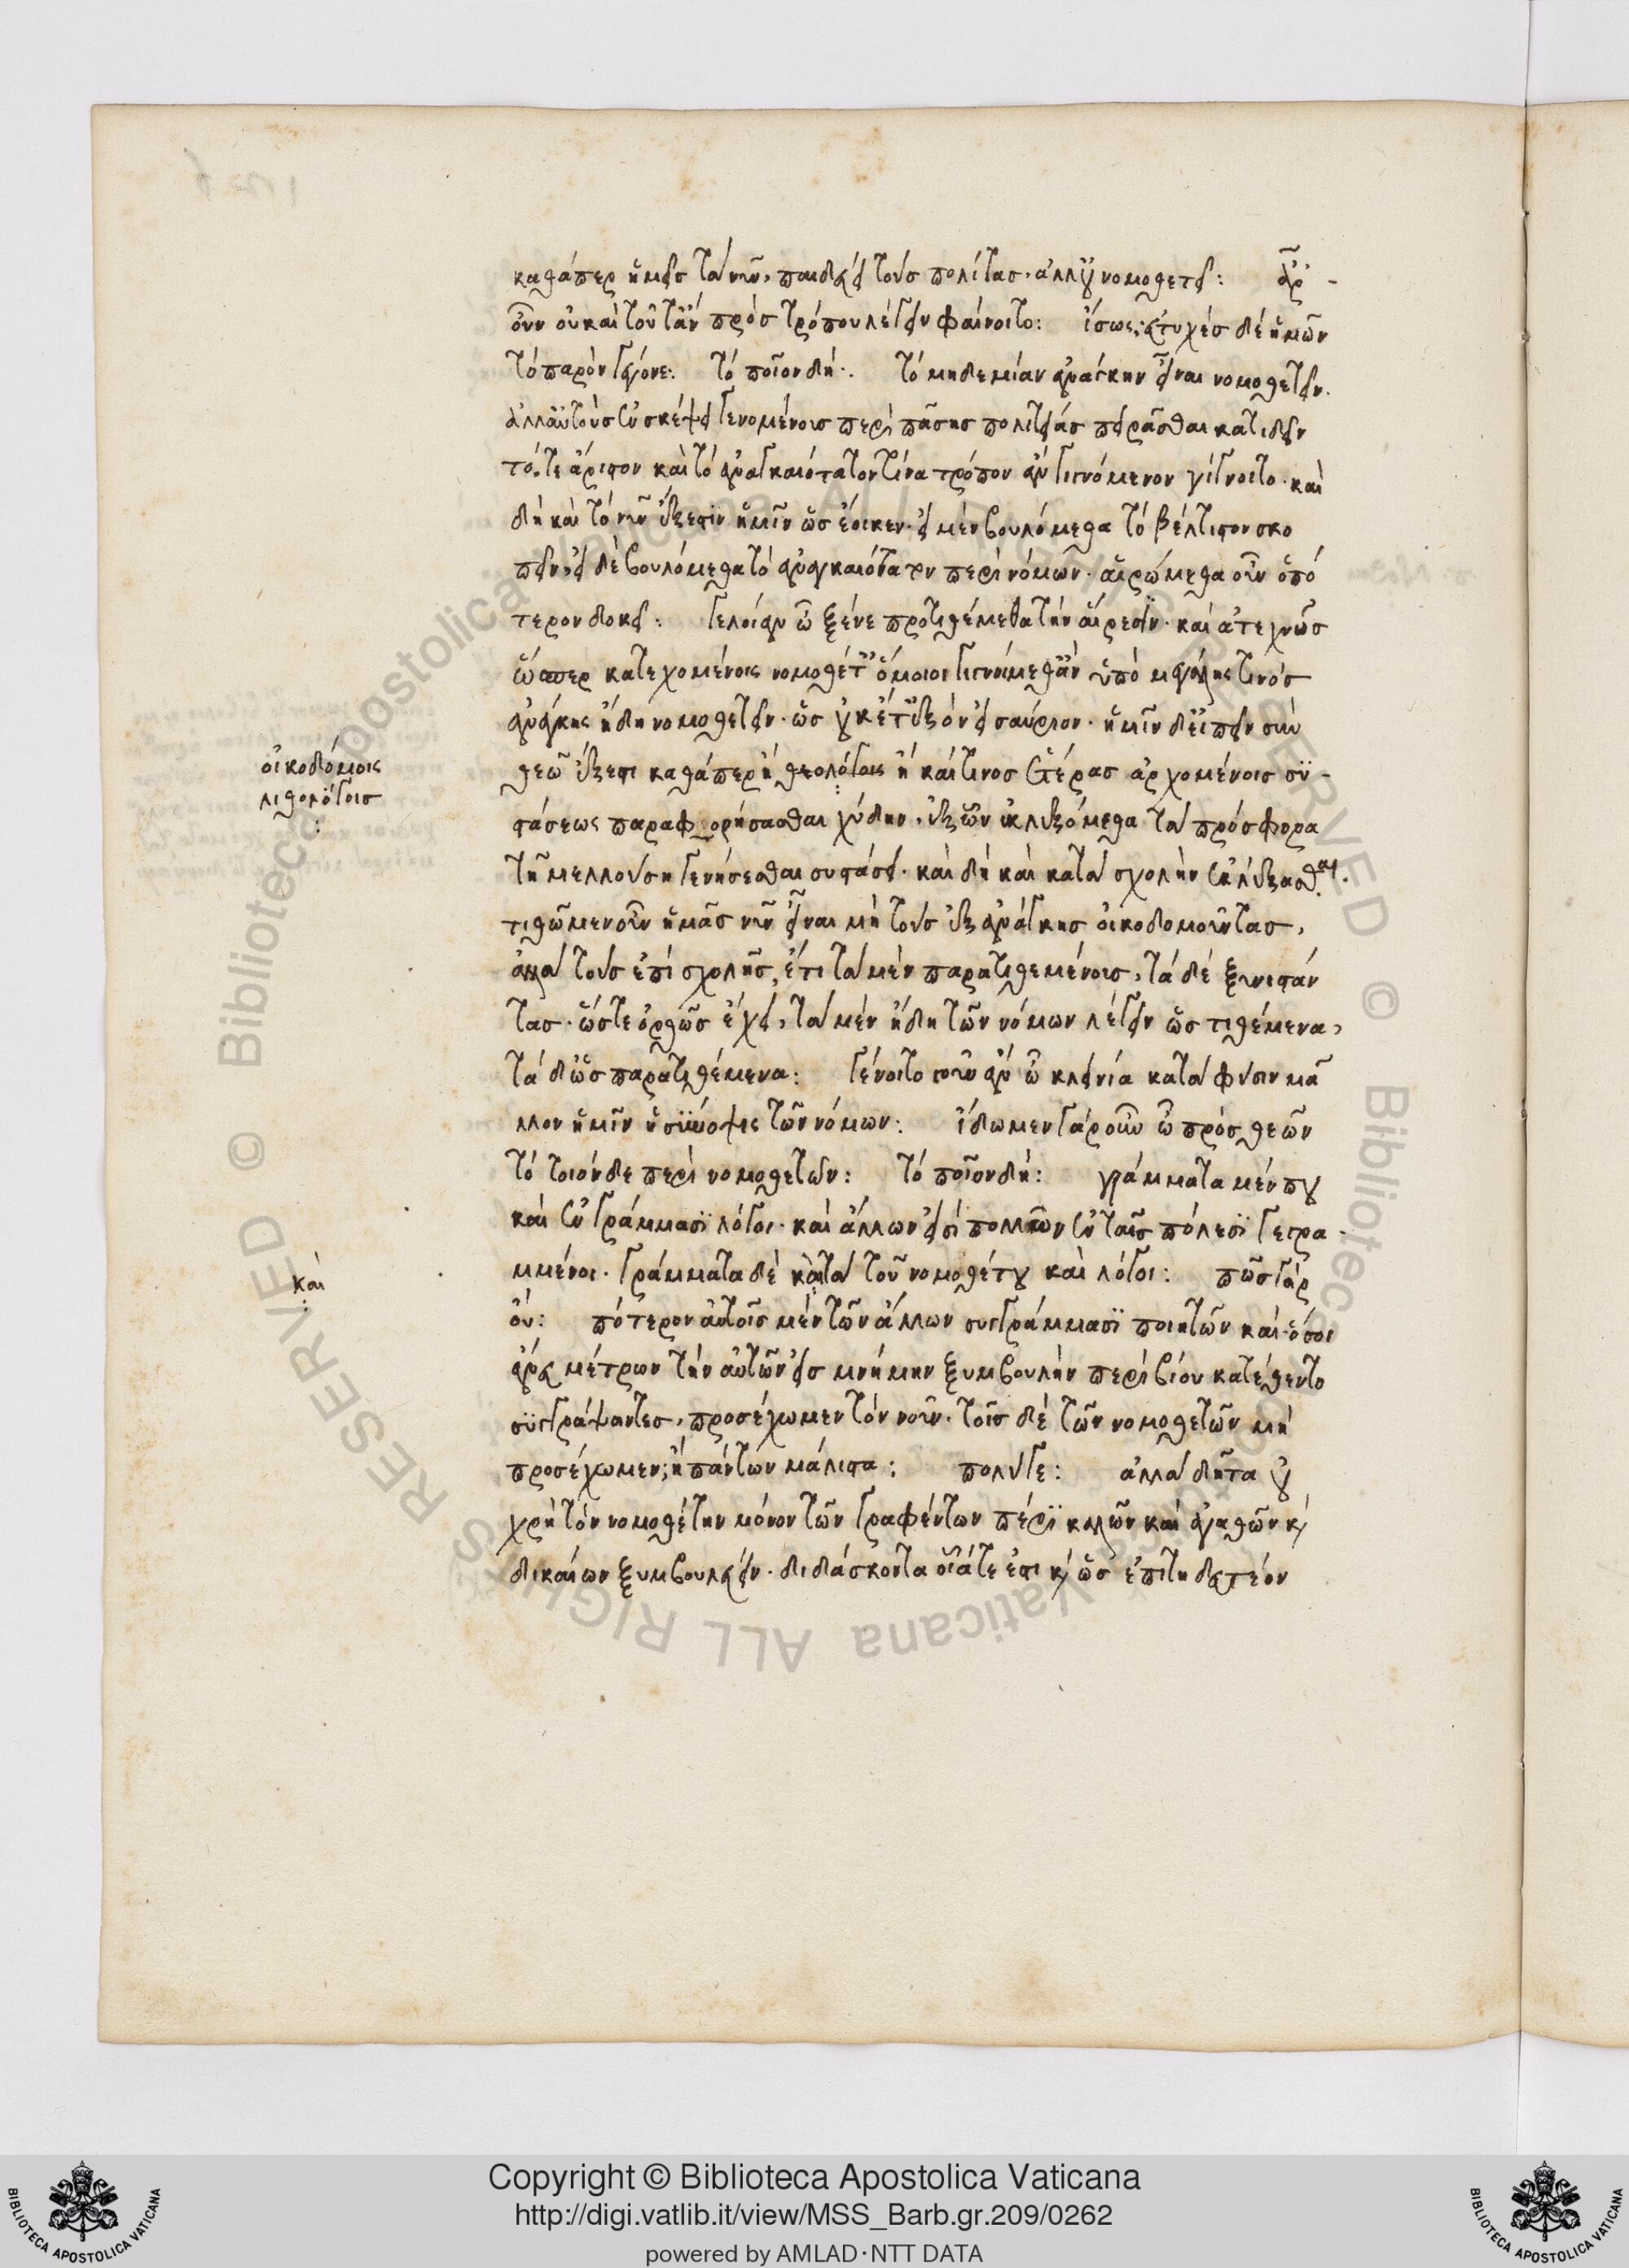 καθάπερ ἡμεῖς τανῦν, παιδεύει τοὺς πολίτας. ἀλλ' οὐ νομοθετεῖ: ἆρ'
οὖν οὐ καὶ τοῦτ' ἂν πρὸς τρόπου λέγειν φαίνοιτο: ἴσως; εὐτυχὲς δὲ ἡμῶν
τὸ παρὸν γέγονε: τὸ ποῖον δή: τὸ μηδεμίαν ἀνάγκην εἶναι νομοθετεῖν.
ἀλλ' αὐτοὺς ἐν σκέψει γενομένοις περὶ πάσης πολιτείας πειρᾶσθαι κατιδεῖν
τό, τε ἄριστον καὶ τὸ ἀναγκαιότατον τίνα τρόπον ἂν γιγνόμενον γίγνοιτο. καὶ
δὴ καὶ τὸ νῦν ἔξεστιν ἡμῖν ὡς ἔοικεν. εἰ μὲν βουλόμεθα τὸ βέλτιστον σκο
πεῖν, εἰ δὲ βουλόμεθα τὸ ἀναγκαιότατον περὶ νόμων. αἱρώμεθα οὖν ὁπό
τερον δοκεῖ: γελοίαν ὦ ξένε προτιθέμεθα τὴν αἵρεσιν. καὶ ἀτεχνῶς
ὥσπερ κατεχομένοις νομοθέταις ὅμοιοι γιγνοίμεθ' ἂν ὑπὸ μεγάλης τινὸς
ἀνάγκης ἤδη νομοθετεῖν. ὡς οὐκέτ' ἐξὸν εἰσαύριον. ἡμῖν δ' εἰπεῖν σὺν
θεῷ ἔξεστι καθάπερ ἢ θεολόγοις ἢ καί τινος ἑτέρας ἀρχομένοις συ-
στάσεως παραφορήσασθαι χύδην, ἐξ ὧν ἐκλεξόμεθα τὰ πρόσφορα
τῇ μελλούσῃ γενήσεσθαι συστάσει. καὶ δὴ καὶ κατὰ σχολὴν ἐκλέξασθαι.
τιθῶμεν οὖν ἡμᾶς νῦν εἶναι μὴ τοὺς ἐξ ἀνάγκης οἰκοδομοῦντας,
ἀλλὰ τοὺς ἐπὶ σχολῆς, ἔτι τὰ μὲν παρατιθεμένοις, τὰ δὲ ξυνιστάν
τας. ὥστε ὀρθῶς ἔχει, τὰ μὲν ἤδη τῶν νόμων λέγειν ὡς τιθέμενα,
τὰ δ' ὡς παρατιθέμενα: γένοιτο γοῦν ἂν ὦ κλεινία κατὰ φύσιν μᾶ
λλον ἡμῖν ἡ σύνοψις τῶν νόμων: ἴδωμεν γὰρ οὖν ὦ πρὸς θεῶν
τὸ τοιόνδε περὶ νομοθετῶν: τὸ ποῖον δή: γράμματα μέν που
καὶ ἐν γράμμασι λόγοι. καὶ ἄλλων εἰσὶ πολλῶν ἐν ταῖς πόλεσι γεγρα
μμένοι. γράμματα δὲ κατὰ τοῦ νομοθέτου καὶ λόγοι: πῶς γὰρ
οὔ: πότερον αὐτοῖς μὲν τῶν ἄλλων συγγράμμασι ποιητῶν καὶ ὅσοι
ἄνευ μέτρων τὴν αὐτῶν εἰς μνήμην ξυμβουλὴν περὶ βίου κατέθεντο
συγγράψαντες, προσέχωμεν τὸν νοῦν. τοῖς δὲ τῶν νομοθετῶν μὴ
προσέχωμεν; ἢ πάντων μάλιστα; πολύ γε: ἀλλὰ δῆτα οὐ
χρὴ τὸν νομοθέτην μόνον τῶν γραφέντων περὶ καλῶν καὶ ἀγαθῶν καὶ
δικαίων ξυμβουλεύειν. διδάσκοντα οἷά τέ ἐστι καὶ ὡς ἐπιτηδευτέον
οἰκοδόμοις
λιθολόγοις
καὶ
Copyright © Biblioteca Apostolica Vaticana
http://digi.vatlib.it/view/MSS_Barb.gr.209/0262
powered by AMLAD·NTT DATA